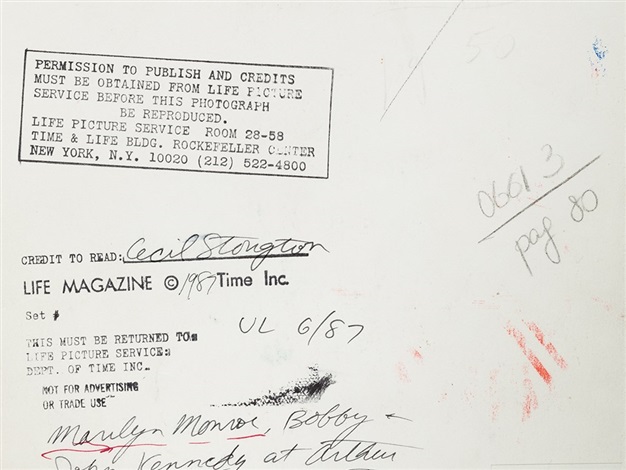 50
PERMISSION TO PUBLISH AND CREDITS
MUST BE OBTAINED FROM LIFE PICTURE
SERVICE BEFORE THIS PHOTOGRAPH
BE REPRODUCED.
LIFE PICTURE SERVICE ROOM 28-58
TIME & LIFE BLDG. ROCKEFELLER CENTER
NEW YORK, N.Y. 10020 (212) 522-4800
0661 3
pag 80
CREDIT TO READ: Cecil Stougton
LIFE MAGAZINE © 1987 Time Inc.
Set #
UL 6/87
THIS MUST BE RETURNED TO
LIFE PICTURE SERVICE
DEPT. OF TIME INC.
NOT FOR ADVERTISING
OR TRADE USE
Marilyn Monroe, Bobby +
John Kennedy at Arthur